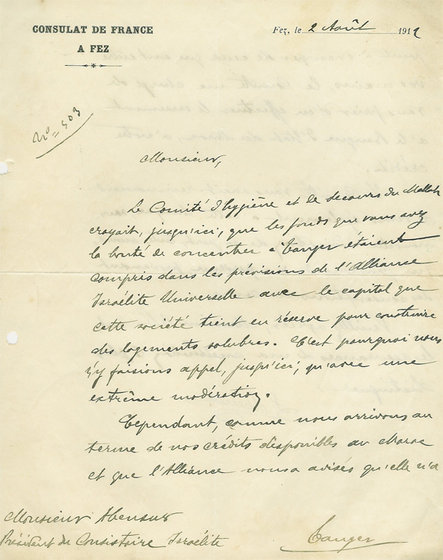 CONSULAT DE FRANCE
A FEZ
Fez, le 2 Août 1912
N° 503
Monsieur,
Le Comité d'hygiène et de secours du Mellah
croyait, jusqu'ici, que les fonds que vous avez
la bonté de concentrer à Tanger étaient
compris dans les prévisions de l'Alliance
Israélite Universelle avec le capital que
cette société tient en réserve pour construire
des logements salubres. C'est pourquoi nous
n'y faisions appel, jusqu'ici, qu'avec une
extrême modération.
Cependant, comme nous arrivons au
terme de nos crédits disponibles au
et que l'Alliance nous a avisés qu'elle n'a
Monsieur Abensur
Président du Consistoire Israélite
Tanger